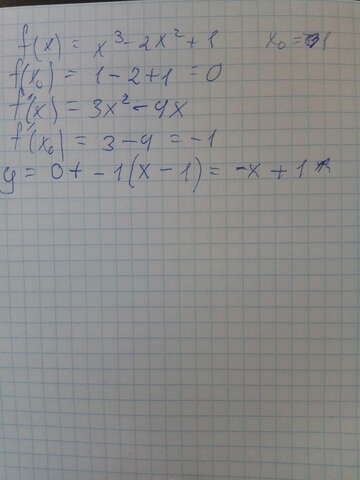 f(x) = x³ - 2x² + 1 x₀ = 1
f(x₀) = 1 - 2 + 1 = 0
f'(x) = 3x² - 4x
f'(x₀) = 3 - 4 = -1
y = 0 + - 1(x - 1) = -x + 1